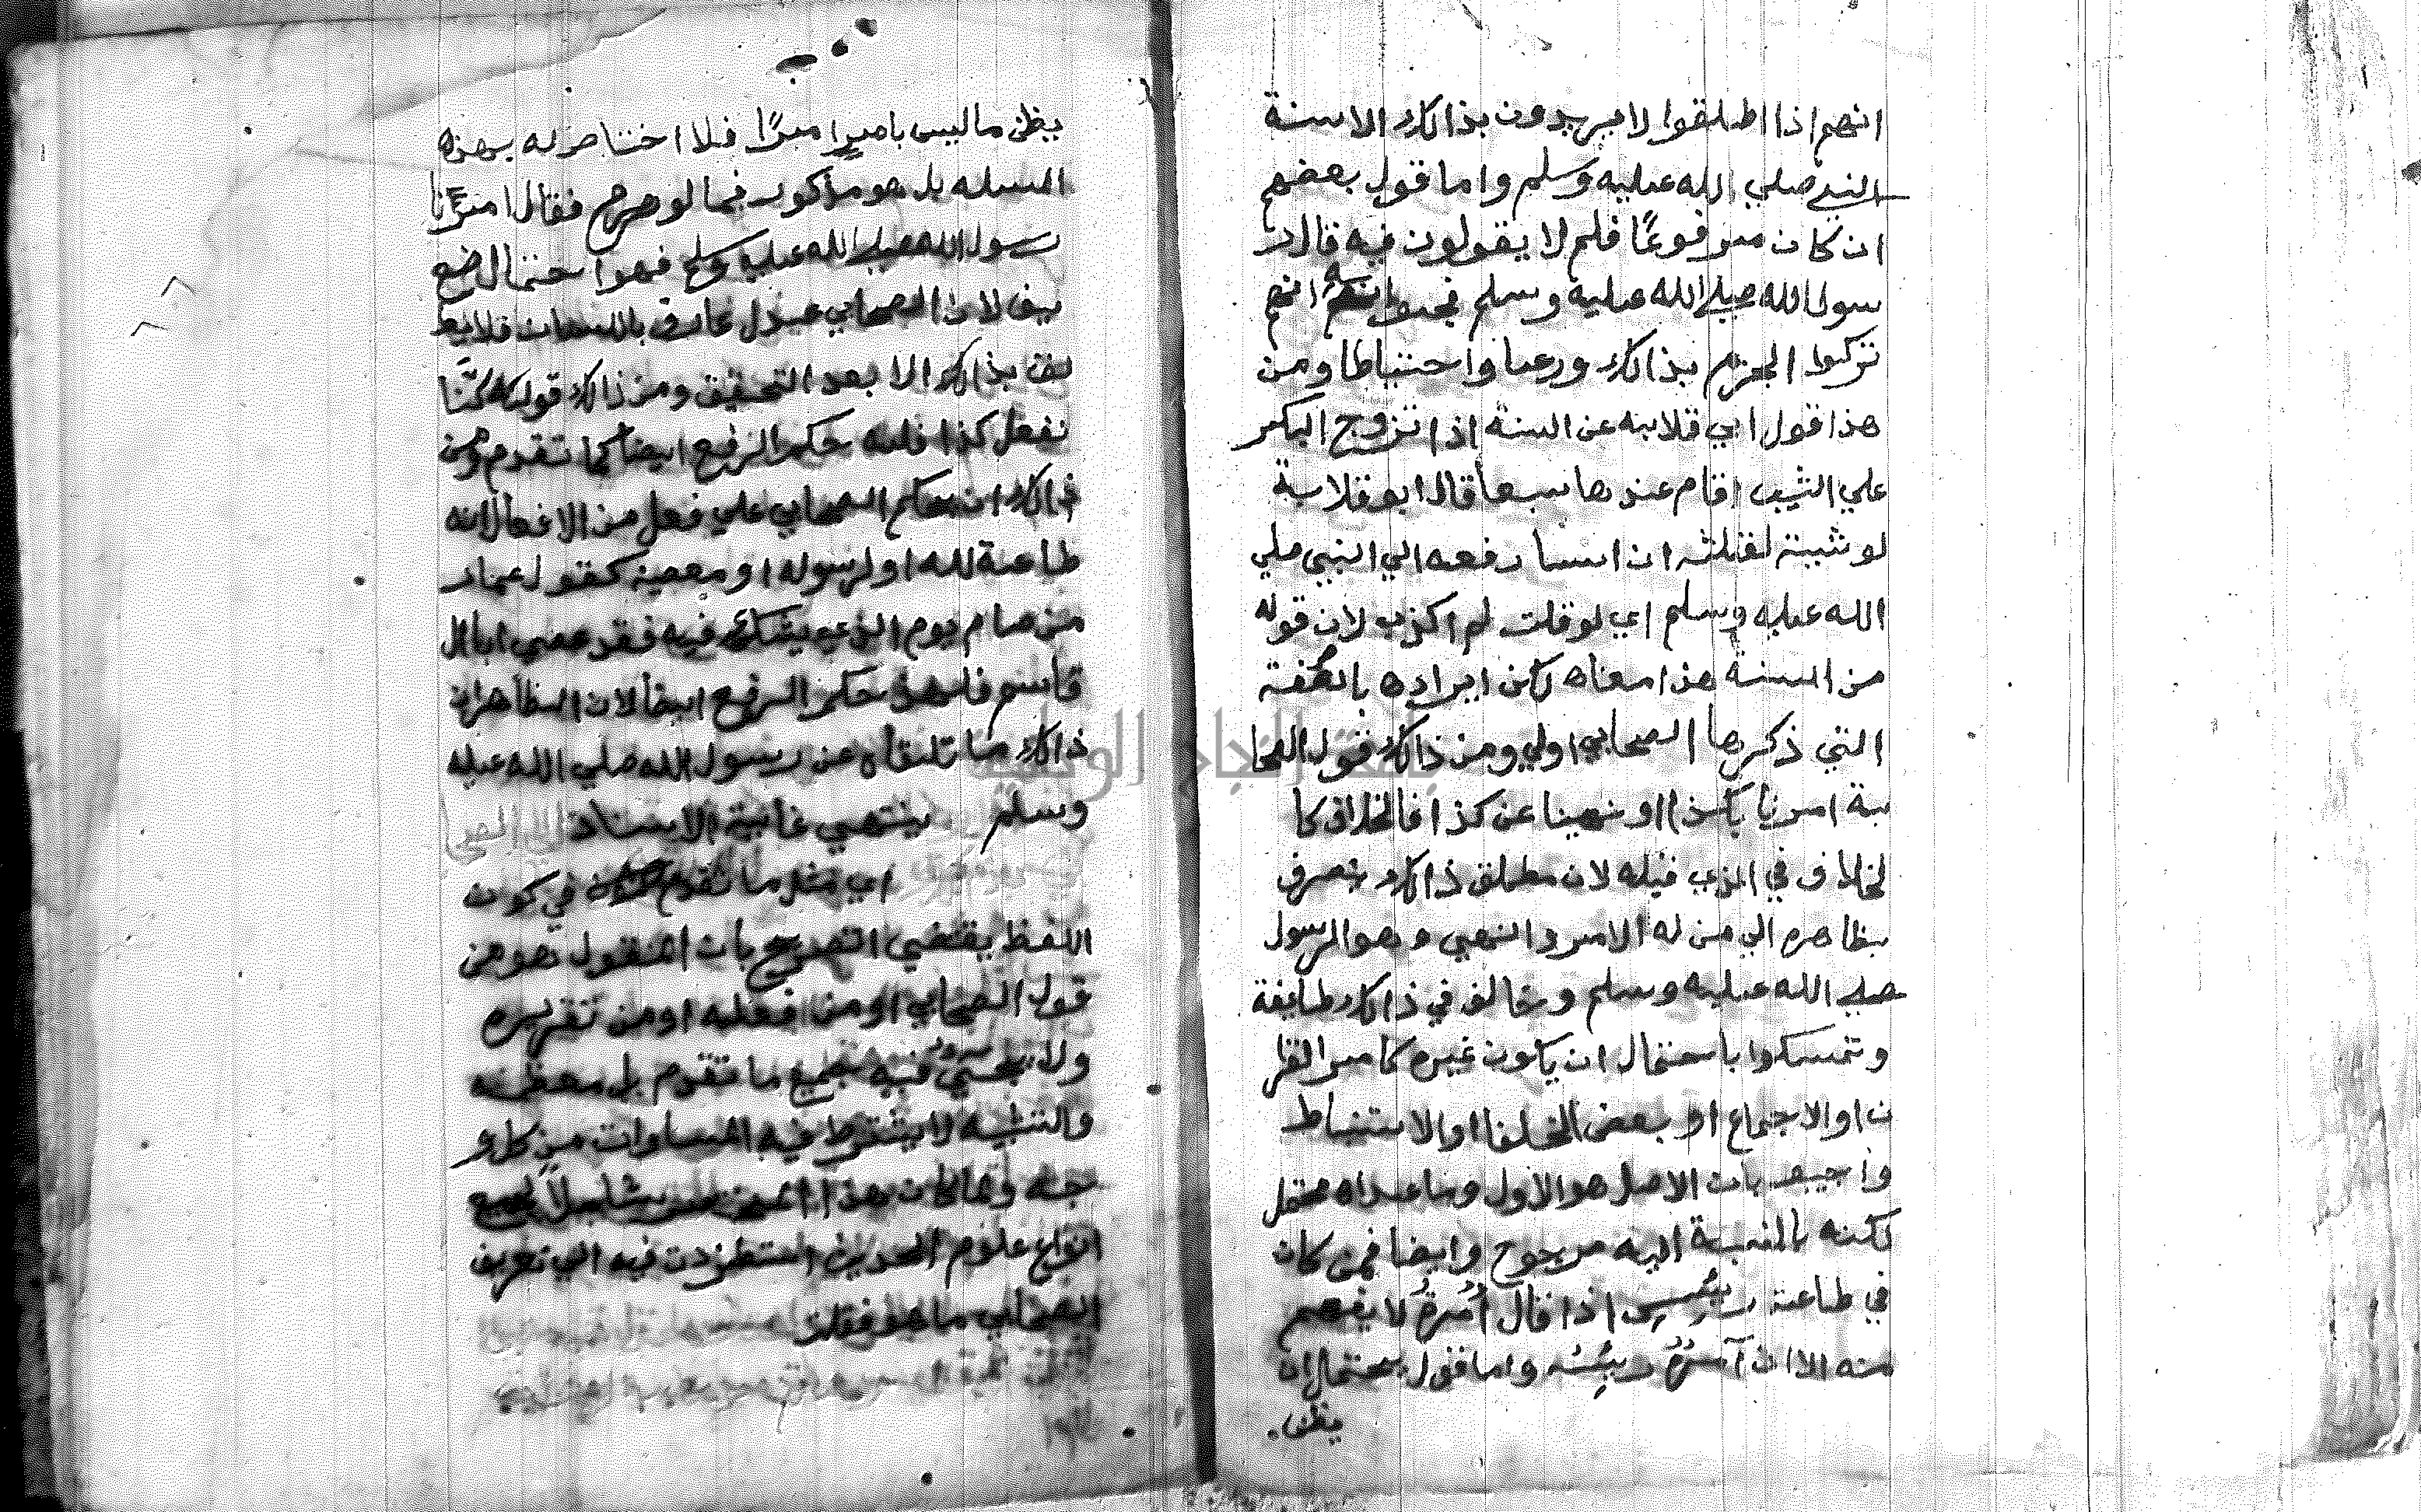 انهم اذا اطلقوا لا يريدون بذالك الا سنة
النبي صلي الله عليه وسلم واما قول بعضهم
ان كان مرفوعًا فلم لا يقولون فيه قال ر
سول الله صلي الله عليه وسلم فجوابه انهم
تركوا الجزم بذالك ورعا واحتياطا ومن
هذا قول ابي قلابه عن السنة اذا تزوج البكر
علي الثيب اقام عندها سبعا قال ابو قلابة
لو شيت لقلت ان انسا رفعه الي النبي صلي
الله عليه وسلم اي لو قلت لم اكذب لان قوله
من السنة هذا معناه لكن ايراده بالصفة
التي ذكرها الصحابي اولي ومن ذالك قول الصحا
بة امرنا بكذا او نهينا عن كذا فالخلاف كا
لخلاف في الذي قبله لان مطلق ذالك ينصرف
بظاهره الي من له الامر والنهي وهو الرسول
صلي الله عليه وسلم وخالف في ذالك طايفة
وتمسكوا باحتمال ان يكون غيره كامر القرا
ن او الاجماع او بعض الخلفا او الاستنباط
واجيب بان الاصل هو الاول وما عداه محتمل
لكنه بالنسبة اليه مرجوح وايضا فمن كان
في طاعة رييس اذا قال امرت لا يفهم
منه الا ان آمره رييسه واما قول يحتمل ان
يظن
يظن ما ليس بامر امرًا فلا اختصاص له بهذه
المسله بل هو مذكور فيما لو صرح فقال امرنا
رسول الله صلي الله عليه وسلم فهو احتمال ضع
يف لان الصحابي عدل عارف باللسان فلا يط
لق ذالك الا بعد التحقيق ومن ذالك قوله كنّا
نفعل كذا فله حكم الرفع ايضا كما تقدم ومن
ذالك ان يحكم الصحابي علي فعل من الافعال انه
طاعة لله او لرسوله او معصية كقول عمار
من صام يوم الذي يشك فيه فقد عصي ابا ال
قاسم فلهذا حكم الرفع ايضا لان الظاهر ان
ذالك مما تلقاه عن رسول الله صلي الله عليه
وسلم ينتهي غاية الاسناد الي الصحا
اي مثل ما تقدم في كون
اللفظ يقتضي التصريح بان المنقول هو من
قول الصحابي او من فعله او من تقريره
ولا يجيء فيه جميع ما تقدم بل معظمه
والتشبيه لا يشترط فيه المساوات من كل و
جه ولما كان هذا المختصر شاملاً لجميع
انواع علوم الحديث استطردت فيه الي تعريف
الصحابي ما هو فقلت